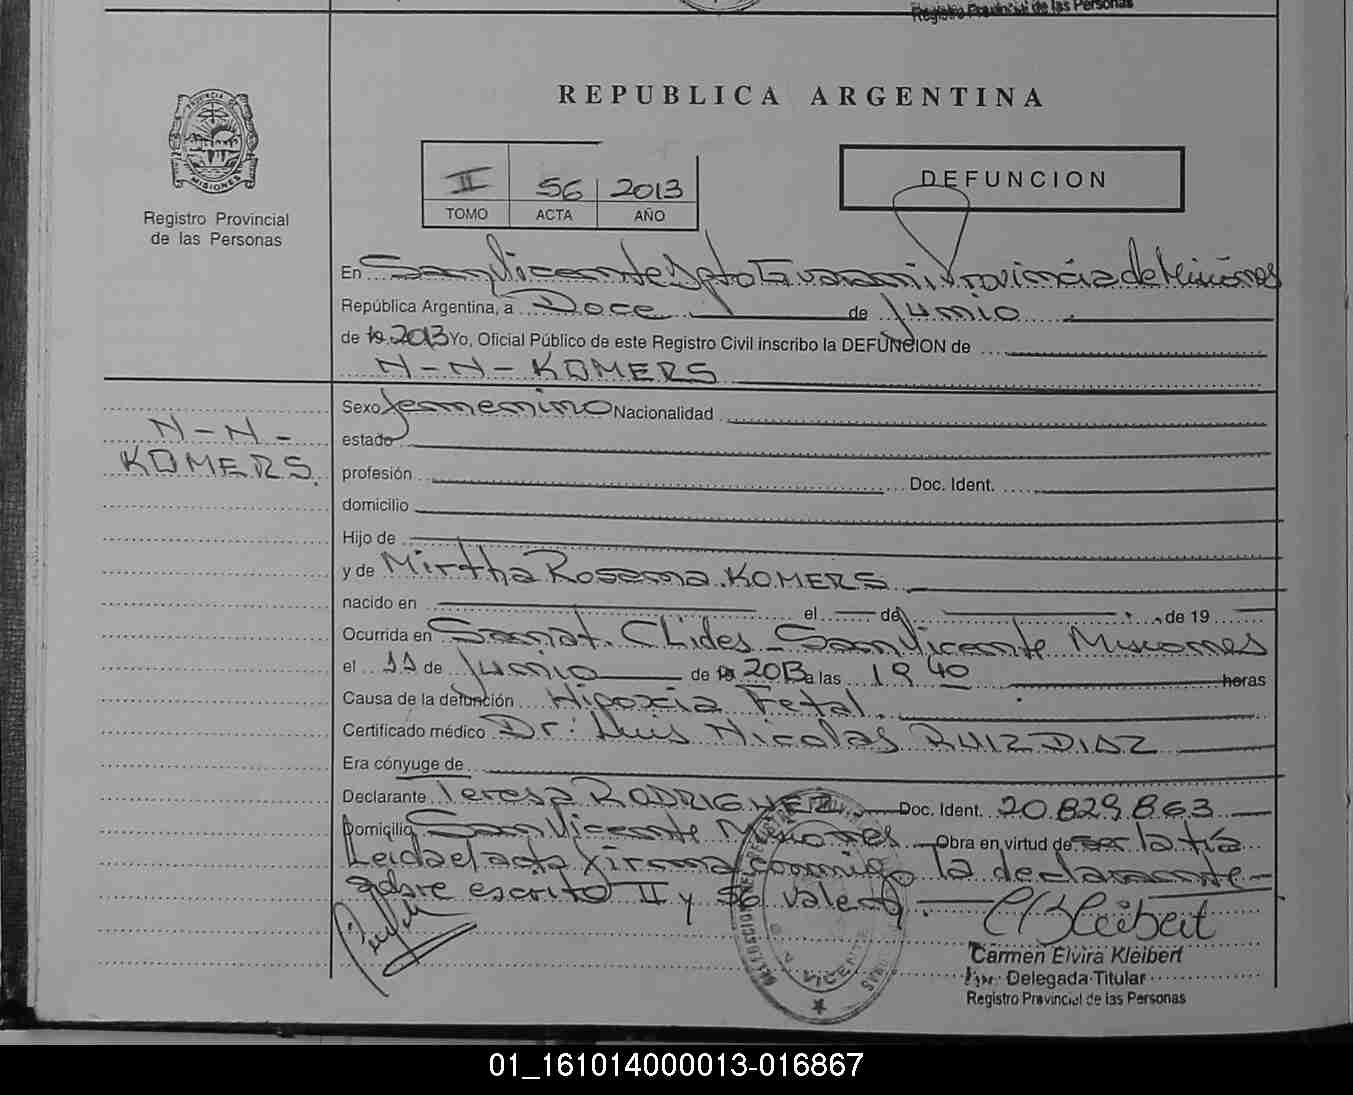 Registro Provincial de las Personas
REPUBLICA ARGENTINA
PROVINCIA DE
MISIONES
Registro Provincial
de las Personas
II 56 2013
TOMO ACTA AÑO
DEFUNCION
En San Vicente Dpto Guaraní Provincia de Misiones
República Argentina, a Doce de Junio
de 19 2013 Yo, Oficial Público de este Registro Civil inscribo la DEFUNCION de
N-N- KOMERS
Sexo femenino Nacionalidad
N-N-
estado
KOMERS
profesión Doc. Ident.
domicilio
Hijo de
y de Mirtha Rosema KOMERS
nacido en el de de 19
Ocurrida en Sanat. CLides - San Vicente Misiones
el 11 de Junio de 19 2013 a las 19 40 horas
Causa de la defunción Hipoxia Fetal
Certificado médico Dr: Luis Nicolas RUIZ DIAZ
Era cónyuge de
Declarante Teresa RODRIGUEZ Doc. Ident. 20.829.863
Domicilio San Vicente Misiones Obra en virtud de ser la tía
Leida el acta firma conmigo la declarante-
sobre escrito II y 56 valen.
VICENTE
Carmen Elvira Kleibert
Delegada Titular
Registro Provincial de las Personas
01_161014000013-016867